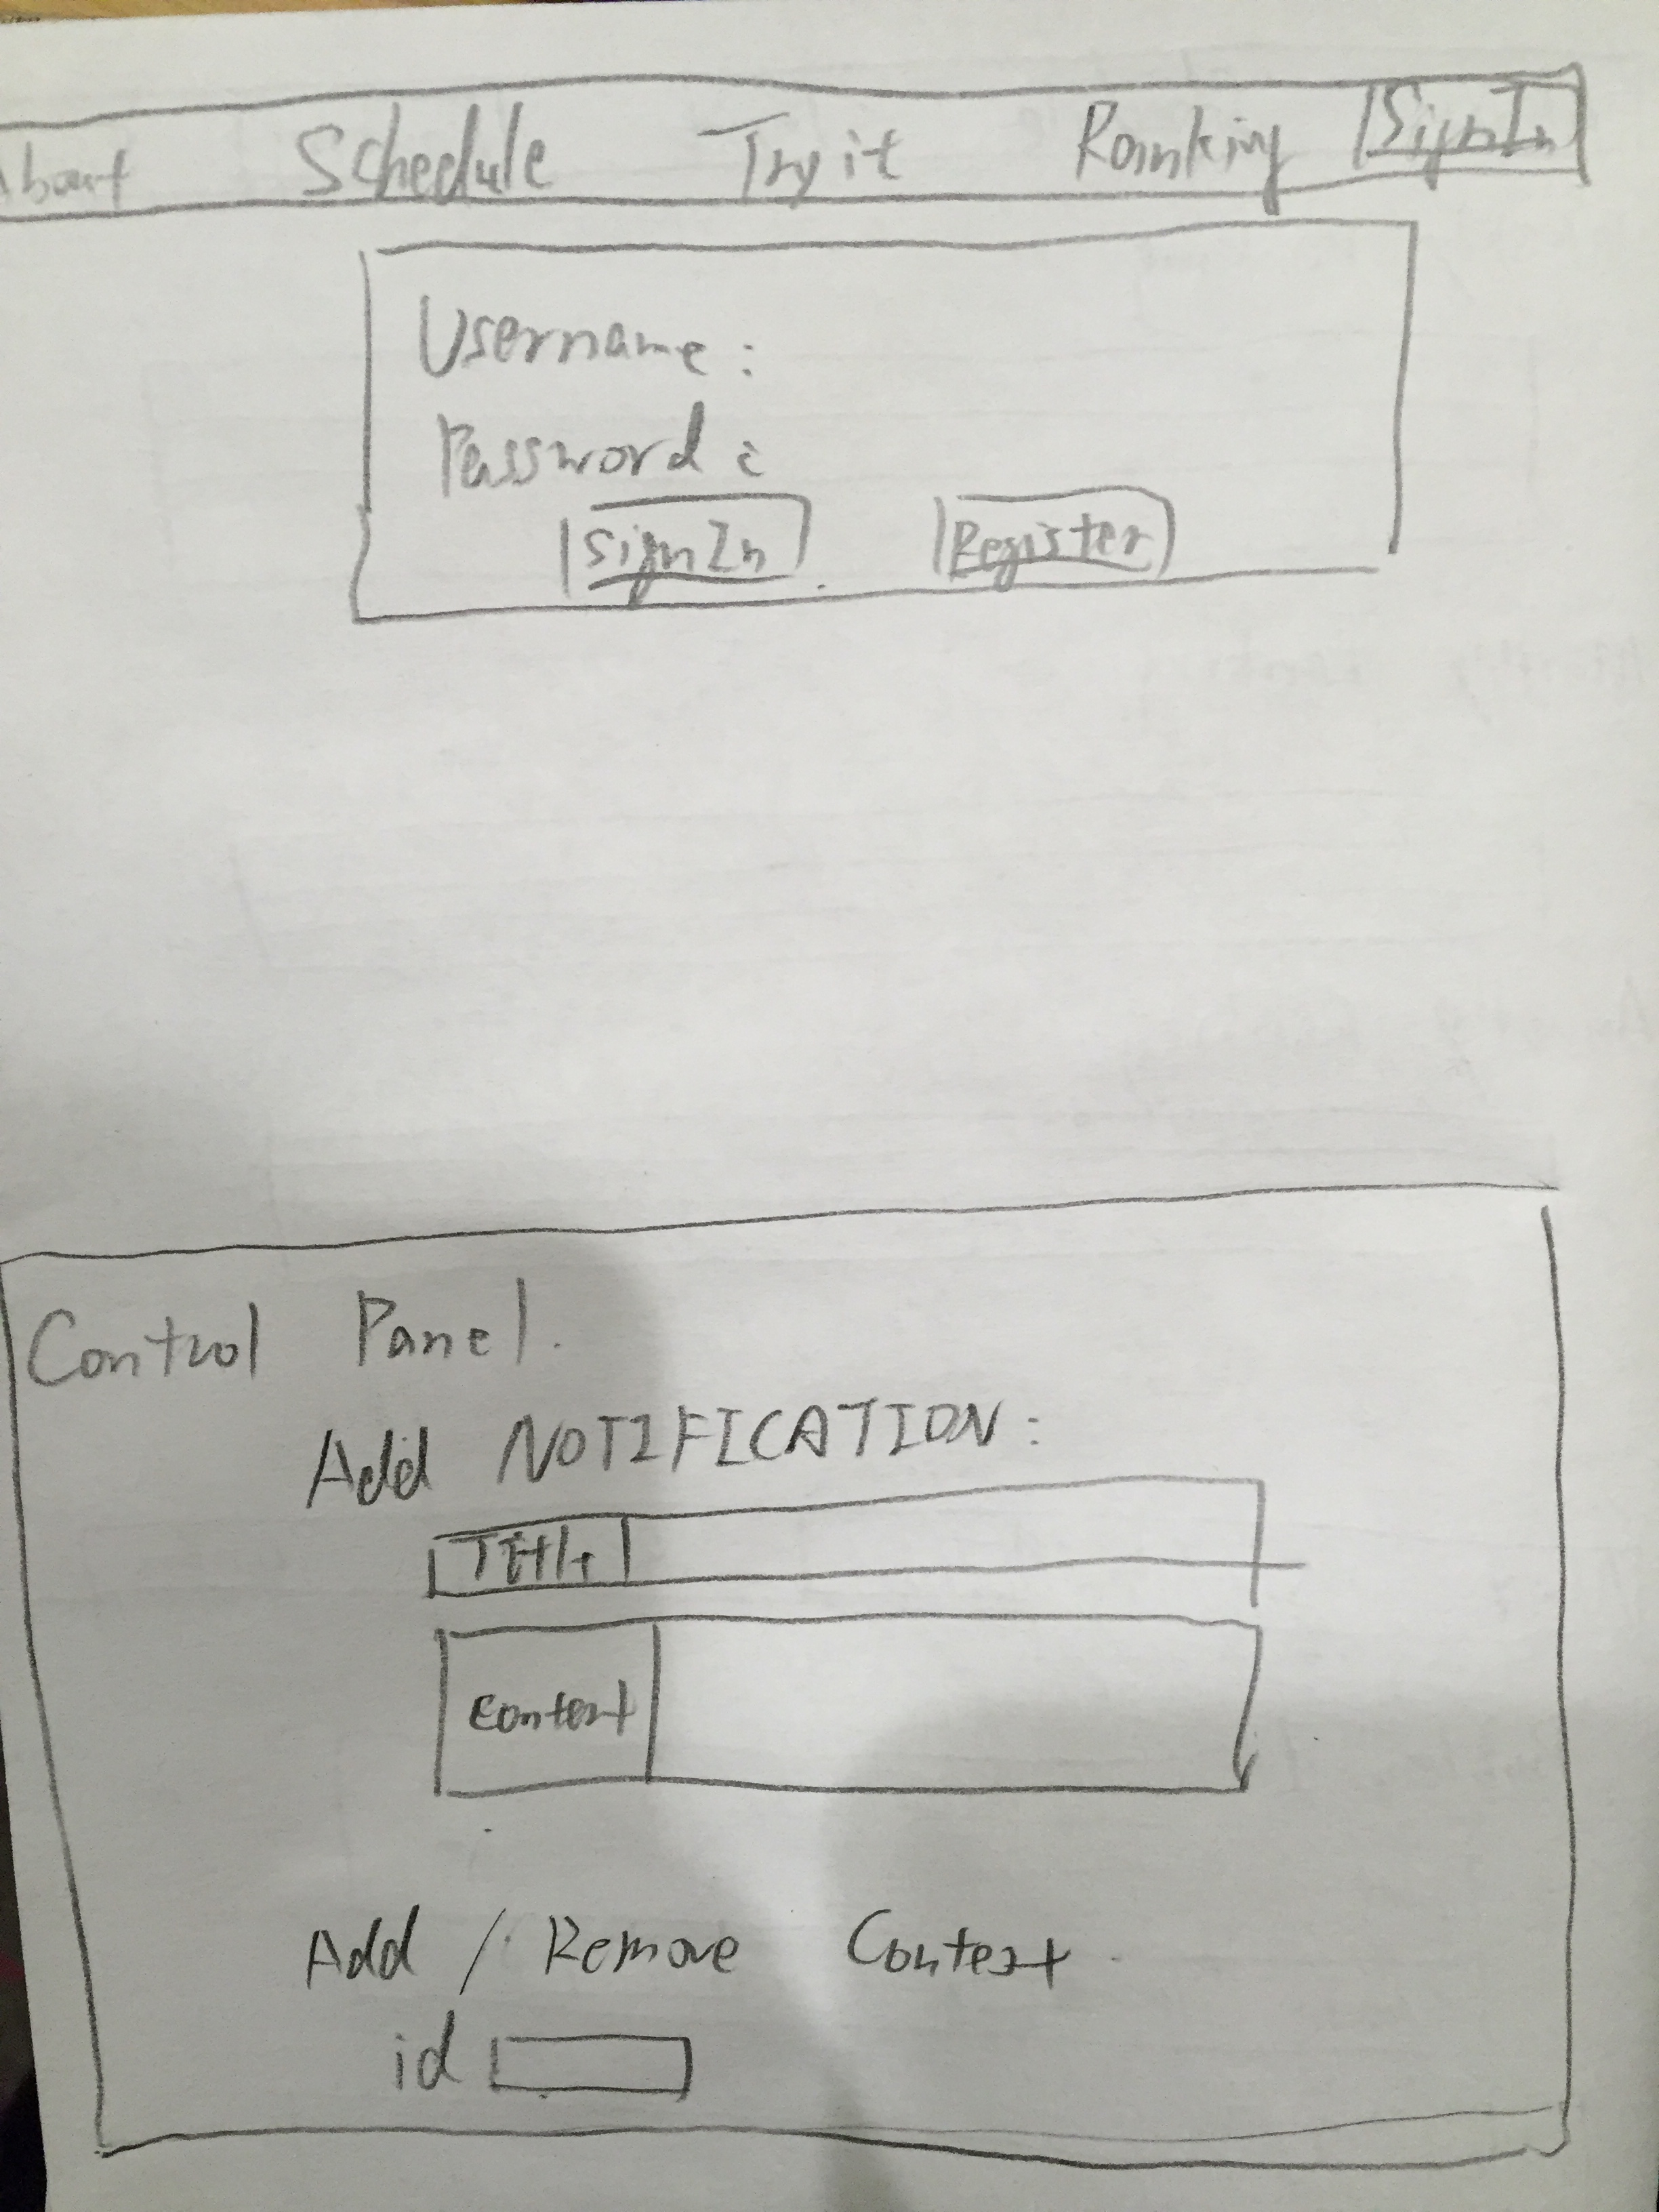 About Schedule Try it Ranking SignIn
Username:
Password:
SignIn Register
Control Panel.
Add NOTIFICATION:
Title
Context
Add / Remove Context
id